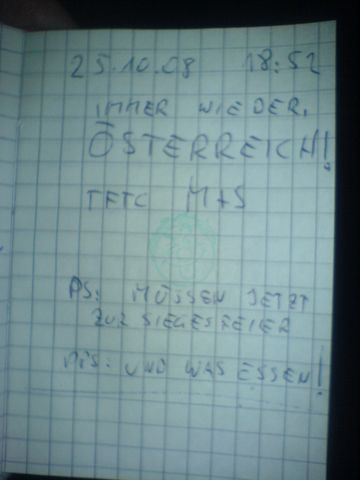 25.10.08 18:52
IMMER WIEDER,
ÖSTERREICH!
TFTC M+S
PS: MÜSSEN JETZT
ZUR SIEGESFEIER
PPS: UND WAS ESSEN!